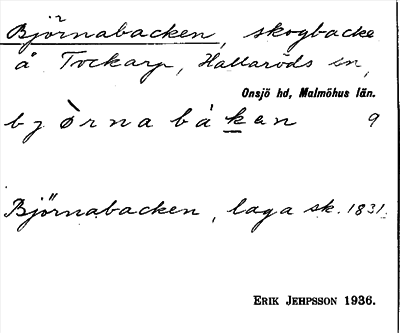 Björnabacken, skogbacke
å Tockarp, Hallaröds sn,
Onsjö hd, Malmöhus län.
bjòrnabákan 9
Björnabacken, laga sk. 1831.
ERIK JEHPSSON 1936.